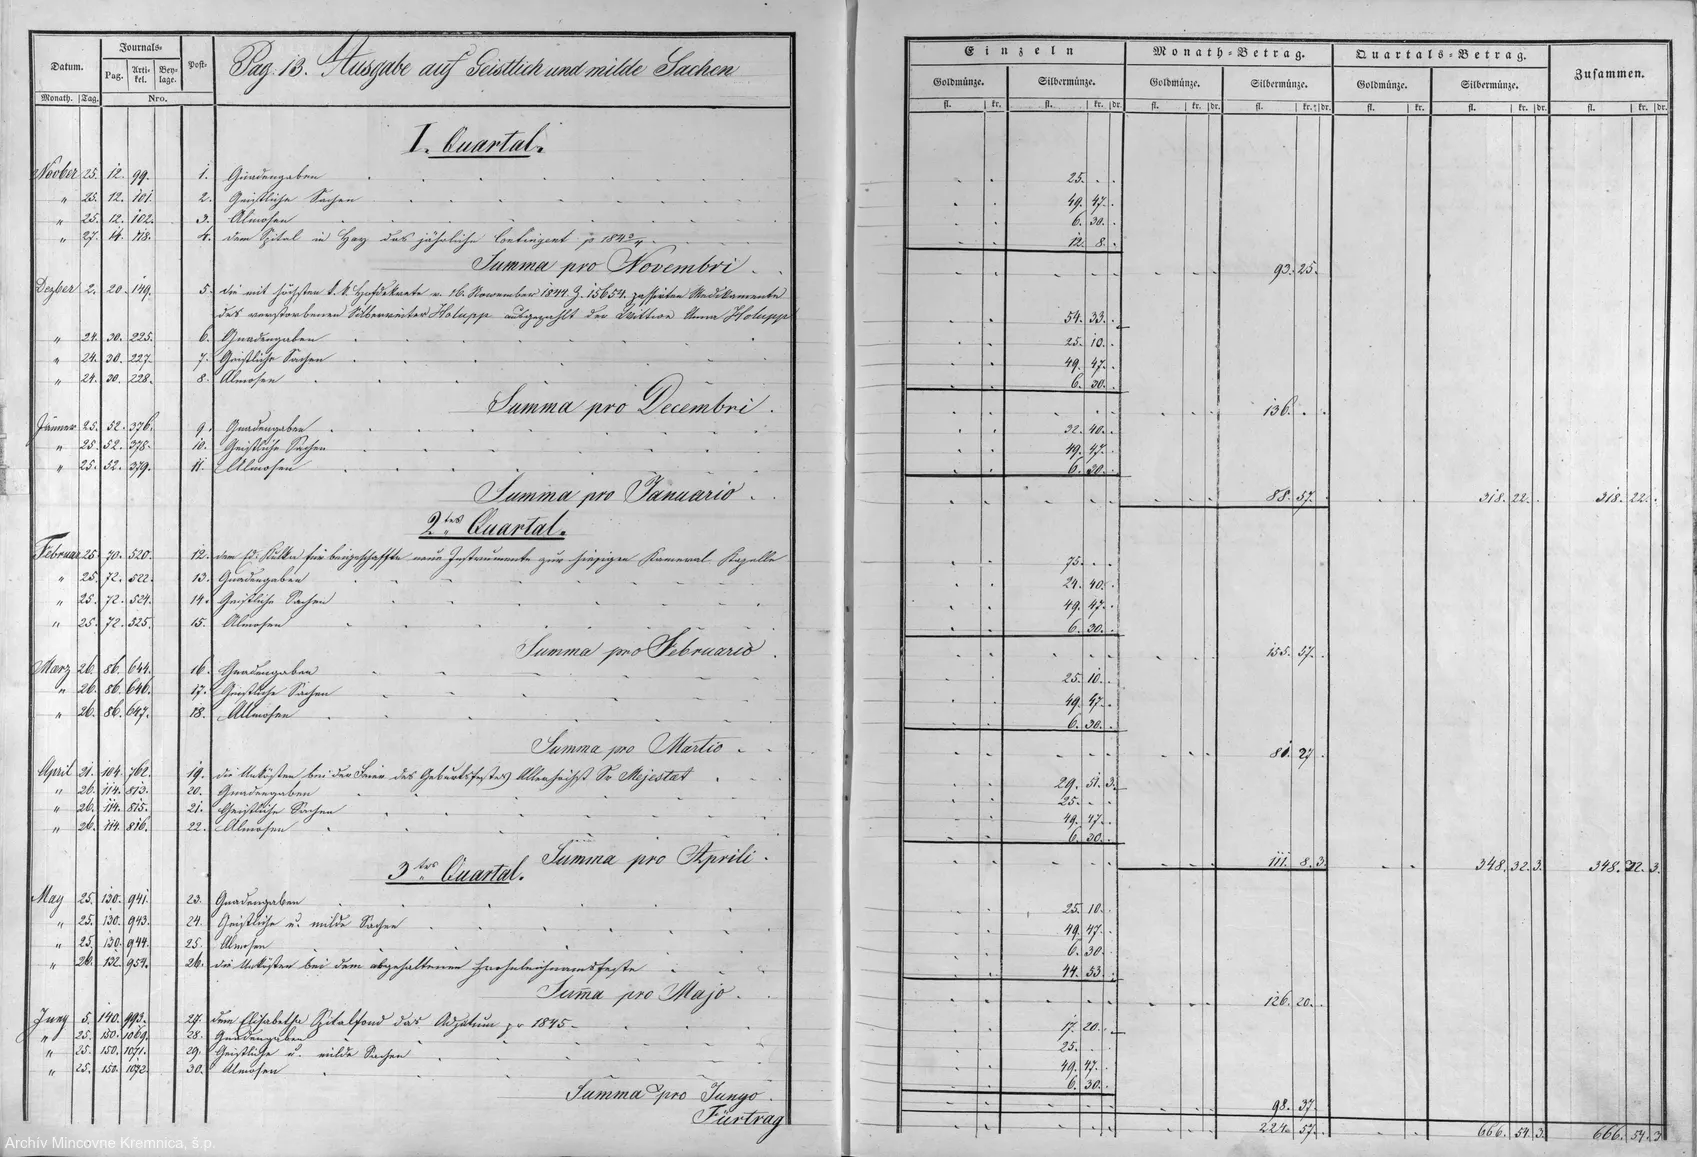 Datum.
Journals-
Pag.
Arti-
kel.
Bey-
lage.
Post-
Monath.
Tag.
Nro.
Pag. 13. Ausgabe auf Geistlich und milde Sachen
Einzeln
Monath-Betrag.
Quartals-Betrag.
Zusammen.
Goldmünze.
Silbermünze.
Goldmünze.
Silbermünze.
Goldmünze.
Silbermünze.
fl. kr. fl. kr. dr. fl. kr. dr. fl. kr. dr. fl. kr. fl. kr. dr. fl. kr. dr.
I. Quartal.
Novber 25. 12. 99. 1. Gnadengaben 25. . .
" 25. 12. 101. 2. Geistliche Sachen 49. 47.
" 25. 12. 102. 3. Almosen 6. 30.
" 27. 14. 118. 4. dem Spital in Hay das jährliche Contingent p 1843/4 12. 8.
Summa pro Novembri 93. 25.
Dezber 2. 20. 149. 5. die mit hohen k. k. Hofdekrete v. 16. November 1844 Z. 15654. passirten Medikamente
des verstorbenen Holupp ausgezahlt der Wittwe Anna Holupp 54. 33.
" 24. 30. 225. 6. Gnadengaben 25. 10.
" 24. 30. 227. 7. Geistliche Sachen 49. 47.
" 24. 30. 228. 8. Almosen 6. 30.
Summa pro Decembri 136. . .
Jänner 25. 52. 376. 9. Gnadengaben 32. 40.
" 25. 52. 378. 10. Geistliche Sachen 49. 47.
" 25. 52. 379. 11. Almosen 6. 30.
Summa pro Januario 88. 57. 318. 22. 318. 22.
2tes Quartal.
Februar 25. 70. 520. 12. dem für beigeschaffte neue Instrumente zur hiesigen Kameral Kapelle 75. . .
" 25. 72. 522. 13. Gnadengaben 24. 40.
" 25. 72. 524. 14. Geistliche Sachen 49. 47.
" 25. 72. 525. 15. Almosen 6. 30.
Summa pro Februario 155. 57.
Marz 26. 86. 644. 16. Gnadengaben 25. 10.
" 26. 86. 646. 17. Geistliche Sachen 49. 47.
" 26. 86. 647. 18. Allmosen 6. 30.
Summa pro Martio 81. 27.
April 21. 104. 762. 19. die Unkösten bei der Feier des Geburtsfestes Allerhöchst Sr Majestat 29. 51. 3.
" 26. 114. 813. 20. Gnadengaben 25. . .
" 26. 114. 815. 21. Geistliche Sachen 49. 47.
" 26. 114. 816. 22. Almosen 6. 30.
Summa pro Aprili 111. 8. 3. 348. 32. 3. 348. 32. 3.
3tes Quartal.
May 25. 130. 941. 23. Gnadengaben 25. 10.
" 25. 130. 943. 24. Geistliche u. milde Sachen 49. 47.
" 25. 130. 944. 25. Almosen 6. 30.
" 26. 132. 954. 26. die Unkösten bei dem abgehaltenen Frohnleichnamsfeste 44. 53.
Summa pro Majo 126. 20.
Juny 5. 140. 993. 27. dem Elisabetha Spitalfond das Adjutum pr 1845 17. 20.
" 25. 150. 1069. 28. Gnadengaben 25.
" 25. 150. 1071. 29. Geistliche u. milde Sachen 49. 47.
" 25. 150. 1072. 30. Almosen 6. 30.
Summa pro Jungo 98. 37.
Fürtrag 224. 57. 666. 54. 3. 666. 54. 3
Archív Mincovne Kremnica, š.p.